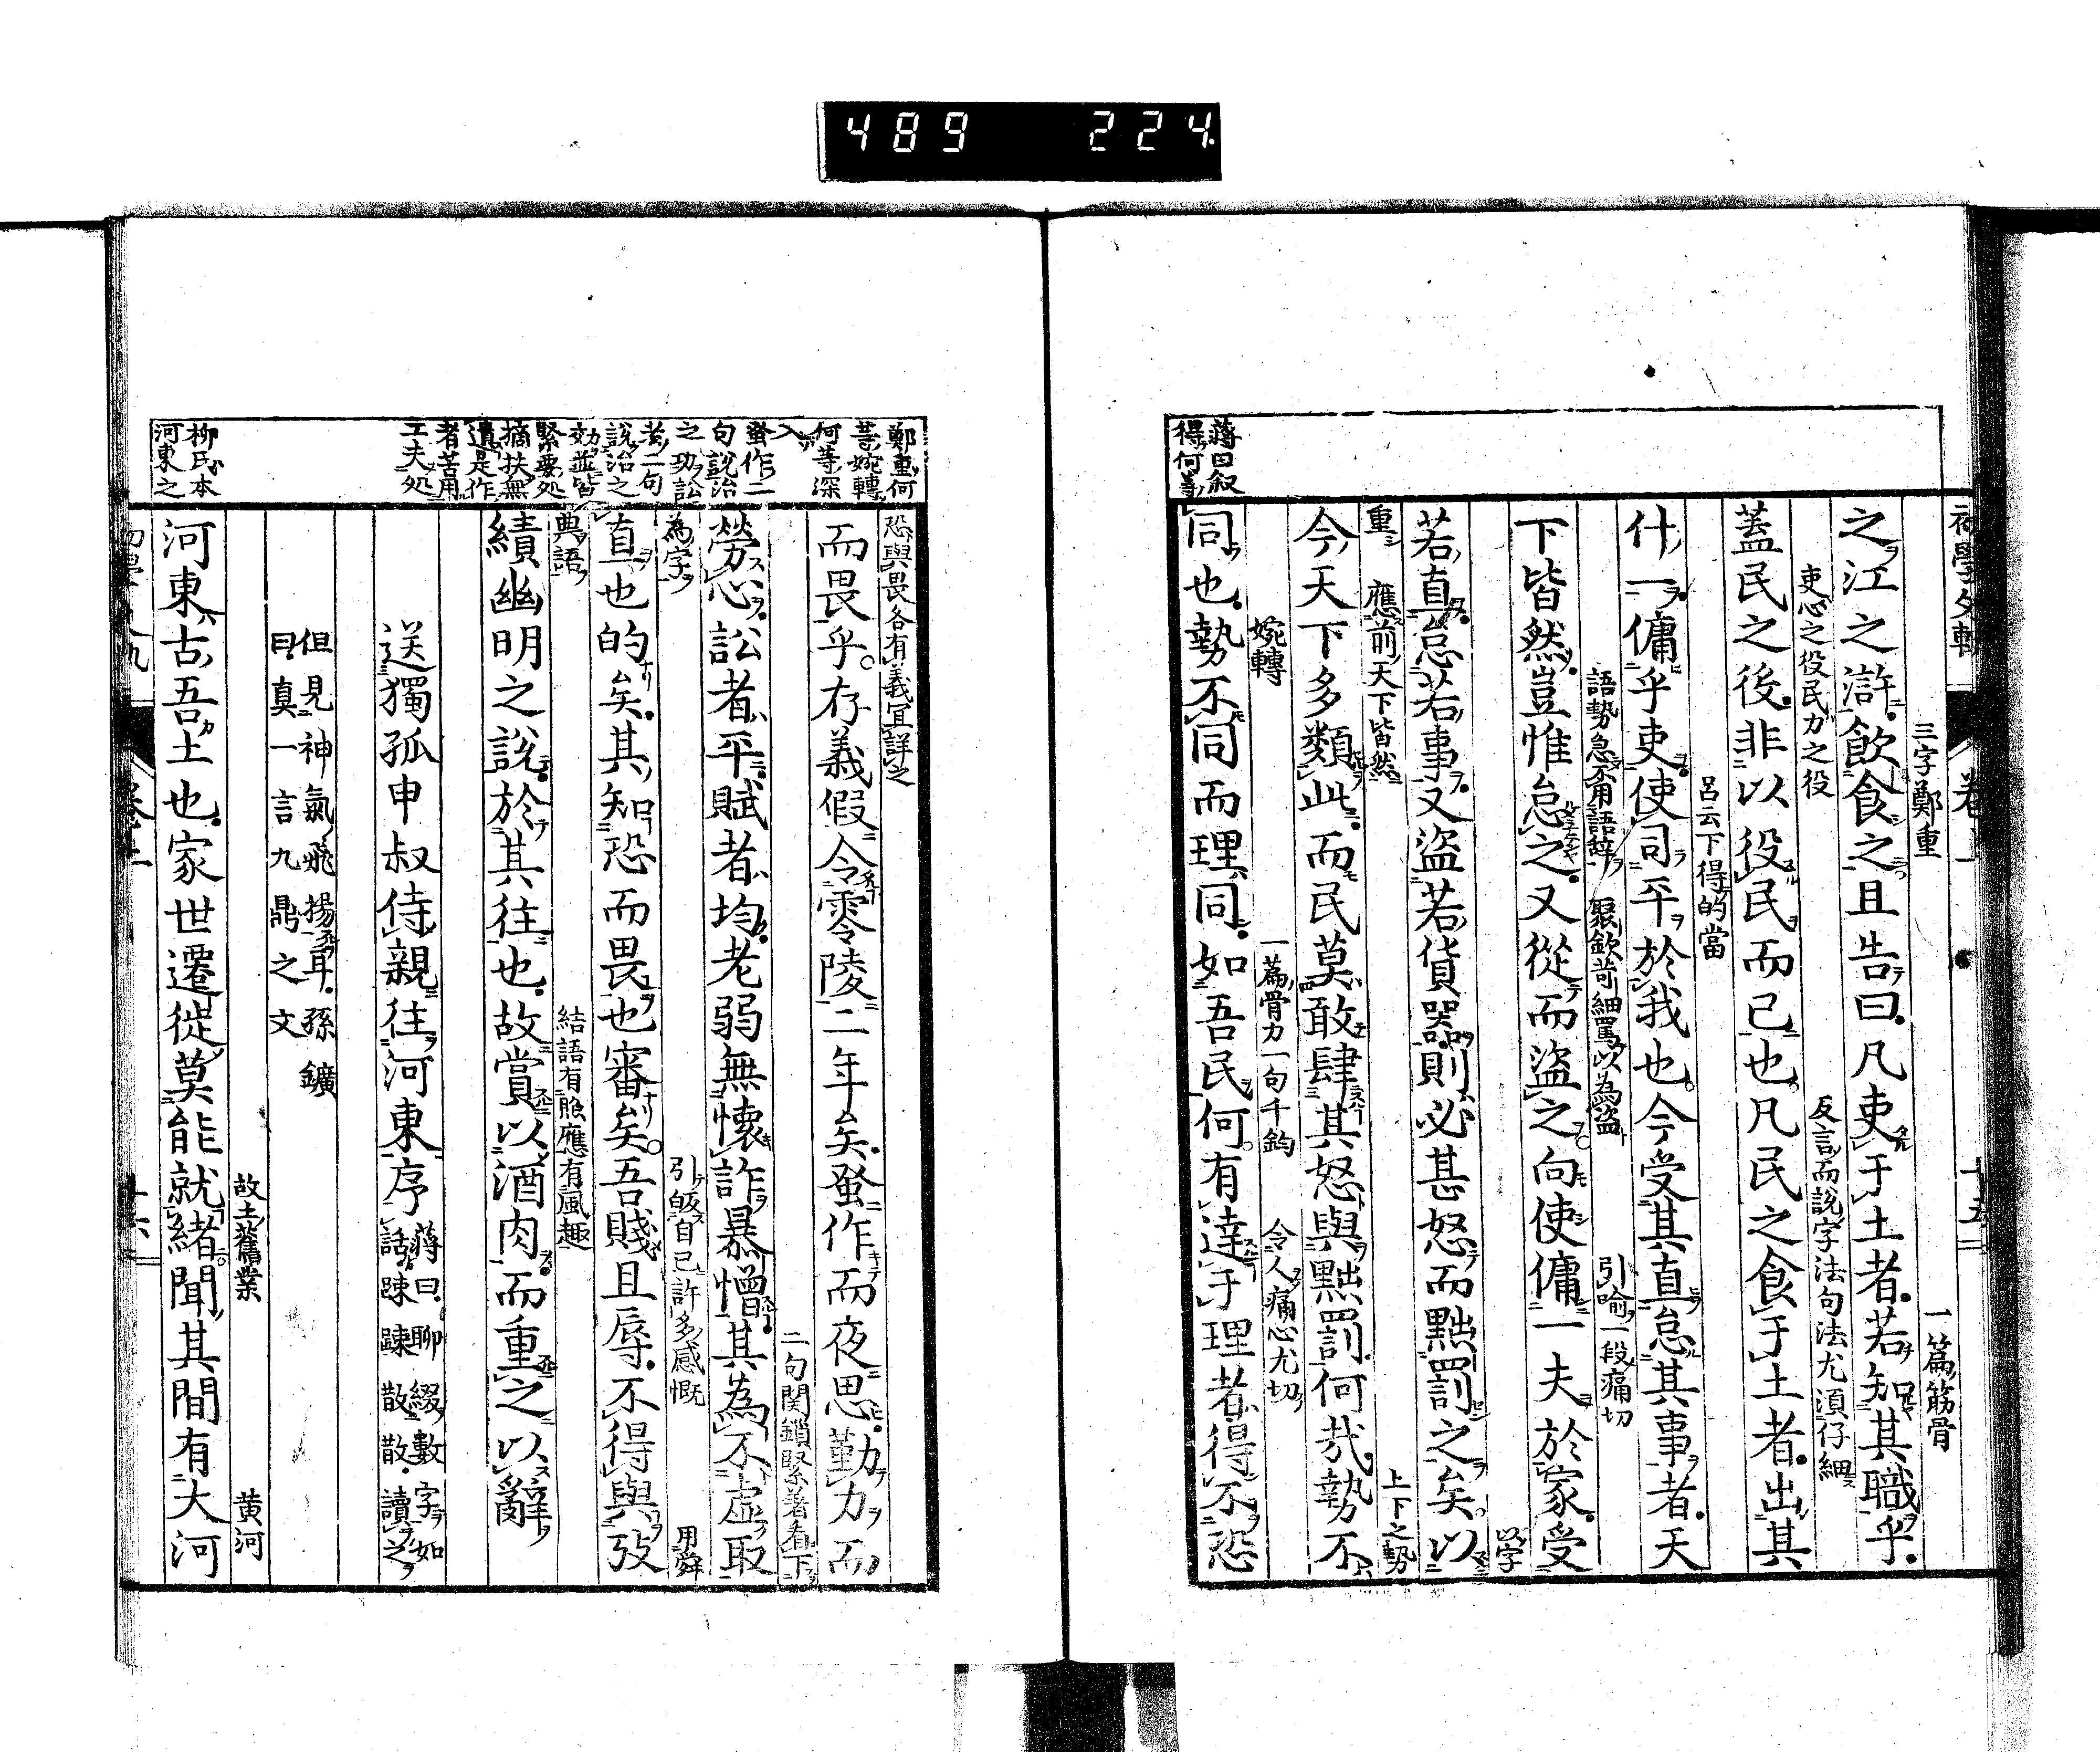 489 224
三字鄭重 一篇筋骨
之江之滸飲食之且告曰凡吏于土者若知其職乎
吏心之役民力之役 反言而說字法句法尤須仔細
蓋民之役非以役民而已也凡民之食于土者出其
呂云下得的當
什一傭乎吏使司平於我也今受其直怠其事者天
語勢急不甬語辞 聚歛苛細罵以為盗 引喻一段痛切
下皆然豈惟怠之又從而盜之向使傭一夫於家受
以字
若直怠若事又盜若貨器則必甚怒而黜罰之矣以
重 應前天下皆然 上下之勢
今天下多類此而民莫敢肆其怒與黜罰何哉勢不
婉轉 一篇骨力一句千鈞 令人痛心尤切
同也勢不同而理同如吾民何有達于理者得不恐
蔣曰叙
得何等
恐與畏各有義冝詳之
而畏乎存義假令零陵二年矣蚤作而夜思勤力而
二句関鎖緊著看下
勞心訟者平賦者均老弱無懷詐暴憎其為不虛取
為字 引皈自己許多感慨 用舜
直也的矣其知恐而畏也審矣吾賤且辱不得與攷
典語 結語有照應有風趣
績幽明之說於其往也故賞以酒肉而重之以辭
送獨孤申叔侍親往河東序 蔣曰聊綴數字如
話踈踈散散讀之
但見神氣飛揚耳孫鑛
曰真一言九鼎之文
故土舊業 黄河
河東古吾土也家世遷徙莫能就緒聞其間有大河
鄭重何
等婉轉
何等深
入
蚤作二
句說治
之功訟
者二句
說治之
効並皆
緊要処
摘扶無
遺是作
者苦用
工夫処
柳氏本
河東之